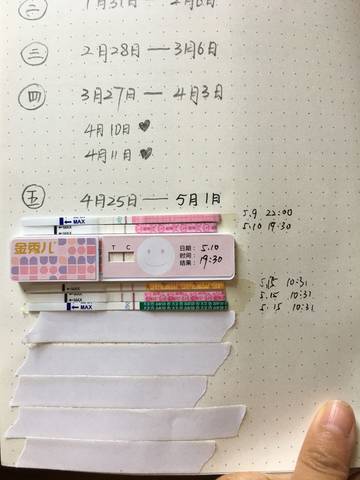 ㊁ 1月31日 — 2月6日
㊂ 2月28日 — 3月6日
㊃ 3月27日 — 4月3日
4月10日 ♥
4月11日 ♥
㊄ 4月25日 — 5月1日
MAX
5.9 22:00
MAX
5.10 19:30
金秀儿
T C
日期: 5.10
时间: 19:30
结果:
5.15 10:31
MAX
5.15 10:31
MAX
5.15 10:31